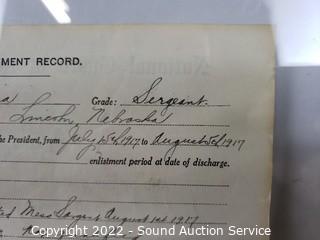 MENT RECORD.
Grade: Sergeant.
Lincoln, Nebraska
the President, from July 15th 1917, to August 5th 1917
enlistment period at date of discharge.
ted Mess Sergt August 1st 1917
Copyright 2022 - SoldOurStuff.com